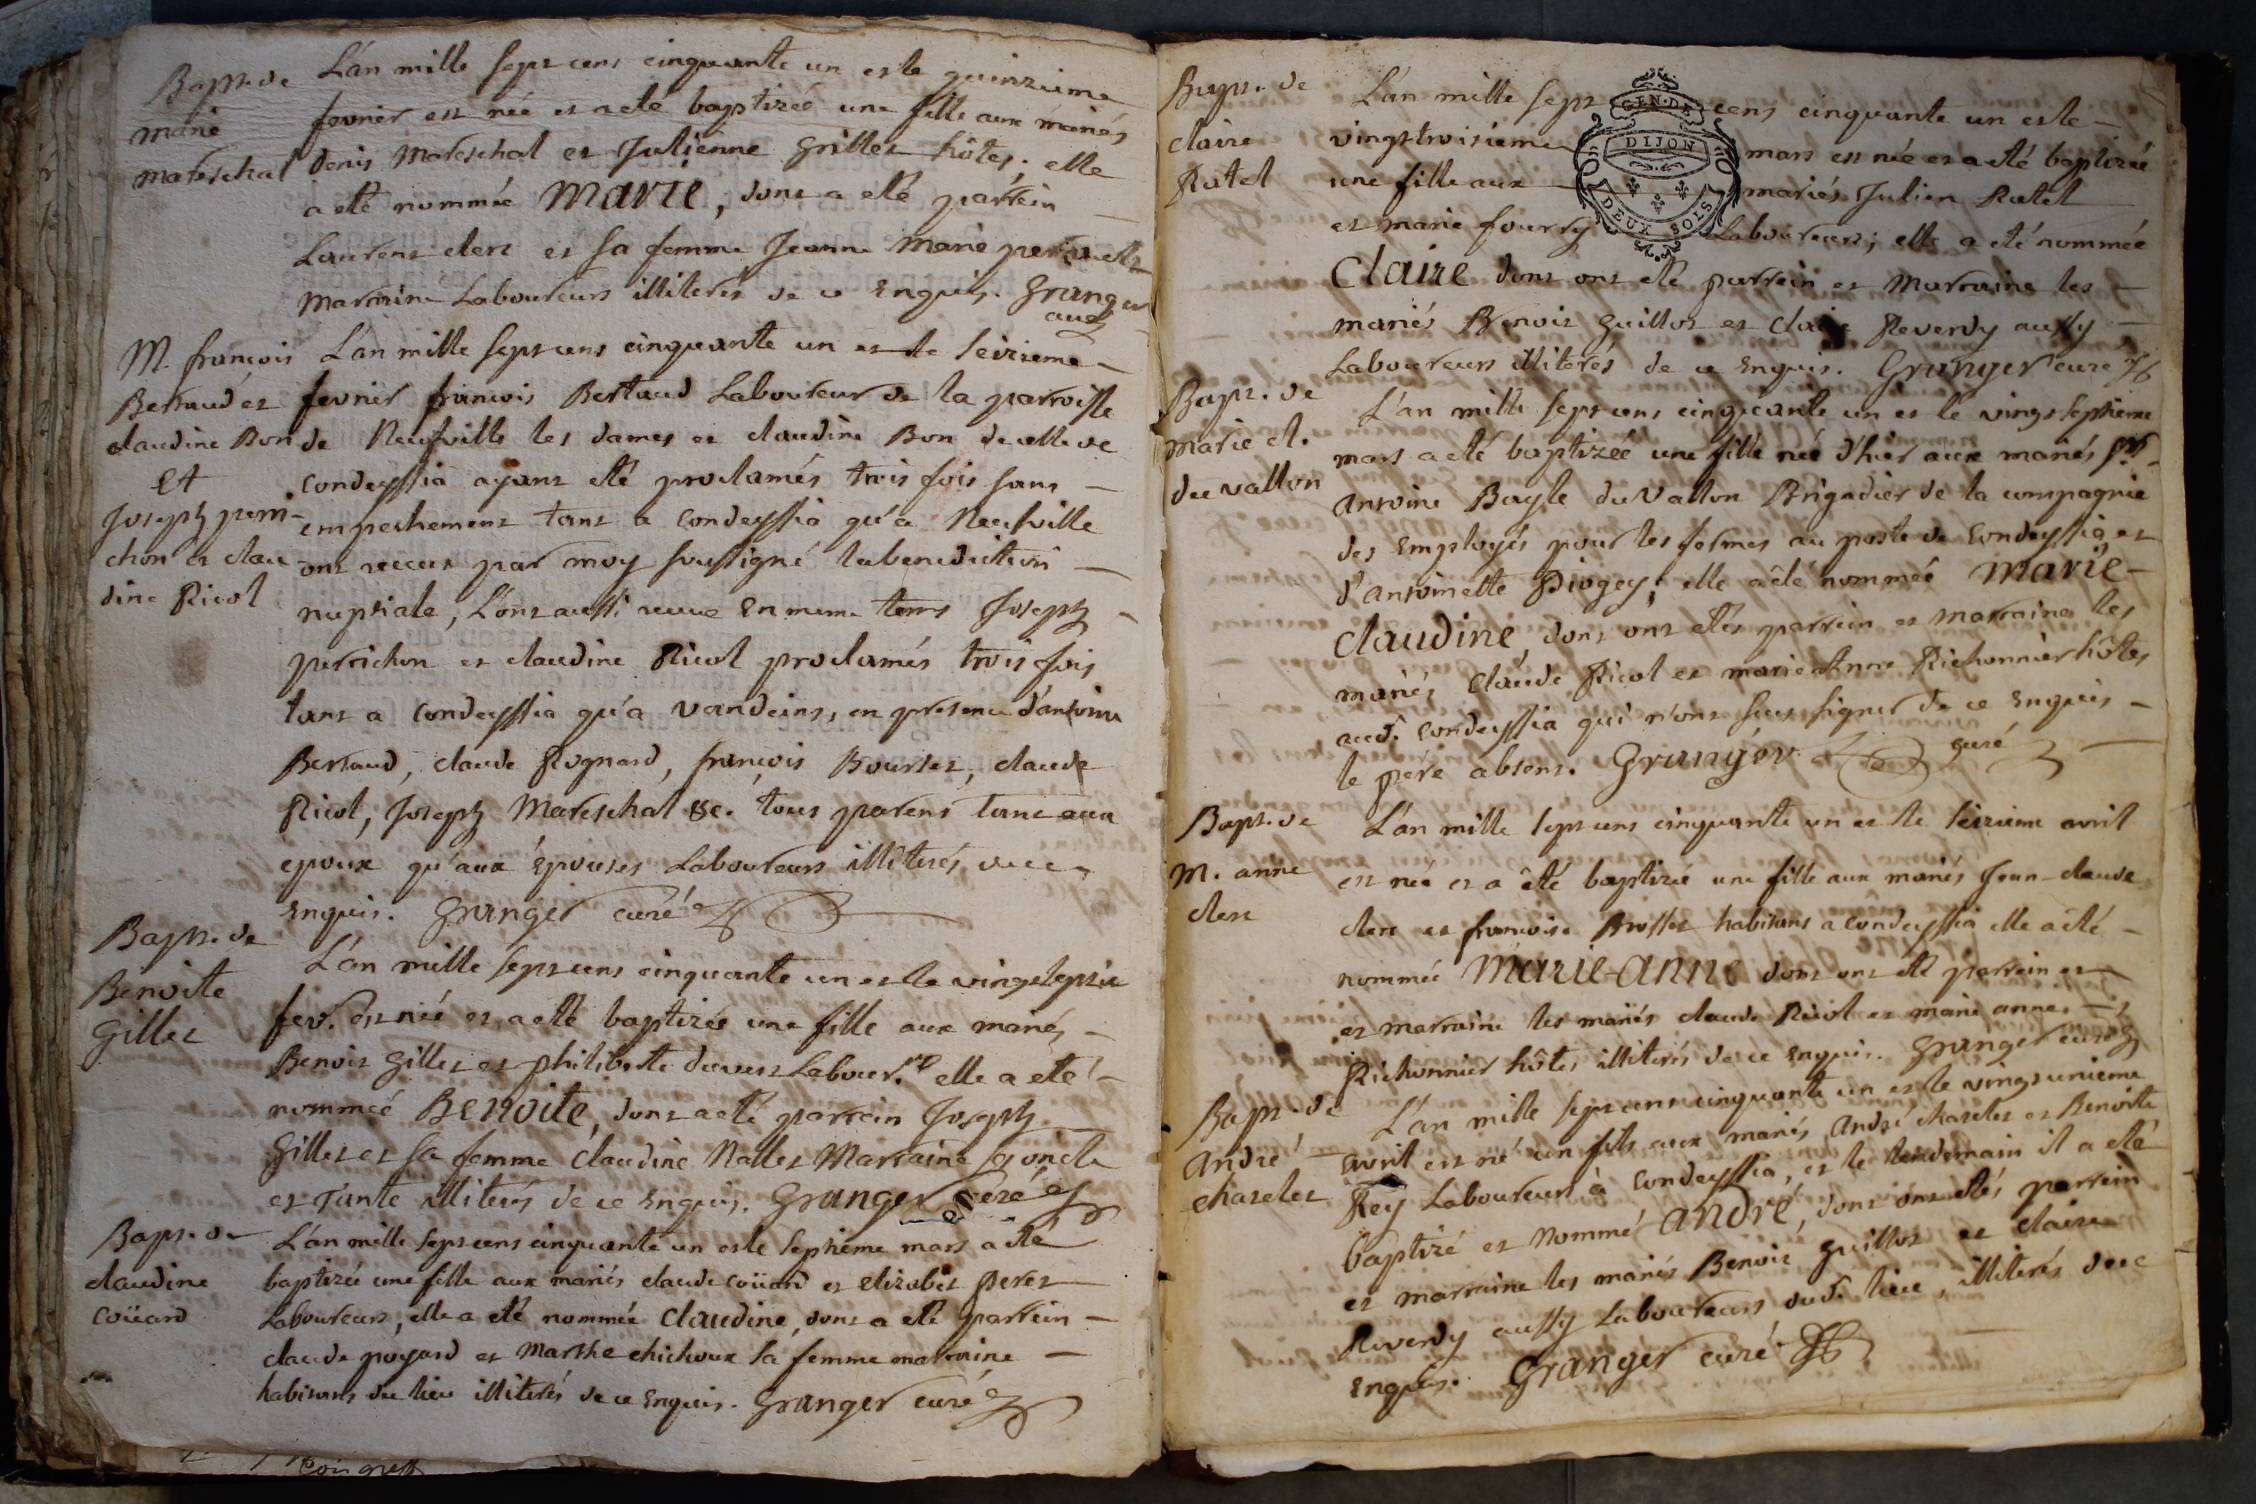 Bapt. de
marie
mareschal
L'an mille sept cens cinquante un et le quinzieme
fevrier est née et a eté baptizée une fille aux mariés
Denis Mareschal et Julienne Grillet hôtes. elle
a eté nommée MARIE, dont a eté parrein
Laurent clerc et sa femme Jeanne Marie
Marraine Laboureurs illiterés de ce Enquis. Granger
curé
M. françois
Bertaud et
claudine Bon
Et
Joseph perri-
chon et clau
dine Ricol
L'an mille sept cens cinquante un et le seizieme
fevrier françois Bertaud Laboureur de la parroisse
de Neufville les dames et claudine Bon de celle de
condeyssia ayant eté proclamés trois fois sans
empechement tant a condeyssia qu'a Neufville
ont receu par moy soussigné la benediction
nuptiale, L'ont aussi receue en meme tems Joseph
perrichon et claudine Ricol proclamés trois fois
tant a condeyssia qu'a vandeins, en presence d'antoine
Bertaud, claude Rognard, françois Bourset, claude
Ricol, Joseph Mareschal &c. tous parens tant aux
epoux qu'aux épouses Laboureurs illiterés de ce
enquis. Granger curé
Bapt. de
Benoite
Gillet
L'an mille sept cens cinquante un et le vingt
fev. est née et a eté baptizée une fille aux mariés
Benoit Gillet et philiberte Labour.rs elle a eté
nommée BENOITE, dont a eté parrein Joseph
Gillet et sa femme Claudine Nallet Marraine oncle
et Tante illiterés de ce Enquis. Granger curé
Bapt. de
claudine
coüard
L'an mille sept cens cinquante un et le septieme mars a eté
baptizée une fille aux mariés claude coüard et elizabet peret
Laboureurs, elle a eté nommée Claudine, dont a eté parrein
claude poyard et Marthe chichoux sa femme marraine
habitants du lieu illiterés de ce enquis. Granger curé
Bapt. de
claire
Ratel
L'an mille sept cens cinquante un et le
vingt troisieme mars est née et a eté baptizée
une fille aux mariés Julien Ratel
et marie fourry Laboureurs; elle a eté nommée
CLAIRE dont ont eté parrein et Marraine les
mariés Benoit Guillot et claire Reverdy aussy
Laboureurs illiterés de ce enquis. Granger curé
GEN. DE
DIJON
DEUX SOLS
Bapt. de
marie cl.
du vallon
L'an mille sept cens cinquante un et le vingt septieme
mars a eté baptizée une fille née d'hier aux mariés
antoine Bayle du Vallon Brigadier de la compagnie
des Employés pour les fermes au poste de Condeyssia et
d'antoinette Piogey; elle a eté nommée MARIE
CLAUDINE, dont ont etés parrein et marraine les
mariés Claude Ricol et marie Anne Richonnier hôtes
aud. Condeyssia qui n'ont sceu signer de ce Enquis
le pere absent. Granger curé
Bapt. de
M. anne
clerc
L'an mille sept cens cinquante un et le seizieme avril
est née et a été baptizée une fille aux mariés Jean-claude
clerc et françoise Brosset habitans a Condeyssia elle a eté
nommée MARIE-ANNE dont ont eté parrein et
et marraine les mariés claude Ricol et marie anne
Richonnier hôtes illiterés de ce enquis. Granger curé
Bapt. de
André
chaselet
L'an mille sept cens cinquante un et le vingt unieme
avril est né un fils aux mariés André chaselet et Benoite
Rey Laboureurs à Condeyssia, et le lendemain il a eté
baptizé et Nommé ANDRÉ, dont ont etés parrein
et marraine les mariés Benoit Guillot et claire
Reverdy aussy Laboureurs dud. lieu, illiterés de ce
enquis. Granger curé